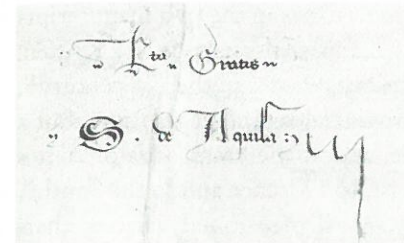 Lta Gratis
S. de Aquila